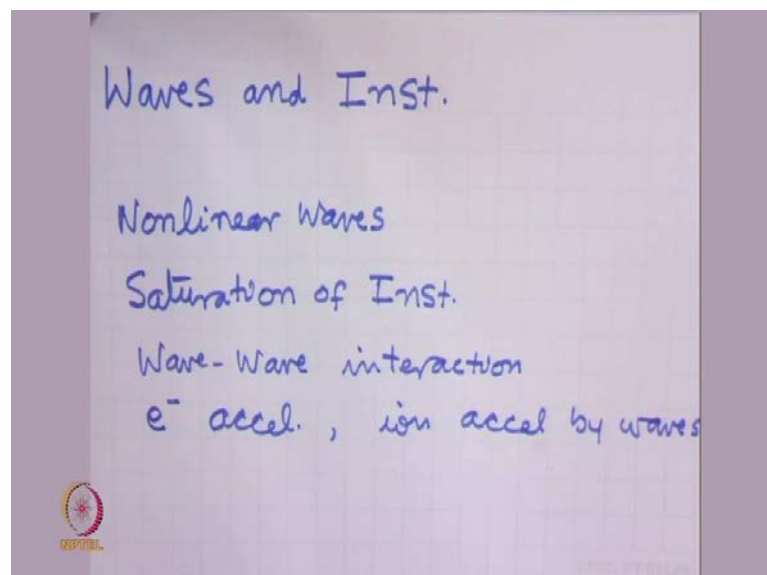 Waves and Inst.
Nonlinear Waves
Saturation of Inst.
Wave-Wave interaction
e⁻ accel. , ion accel by waves
NPTEL